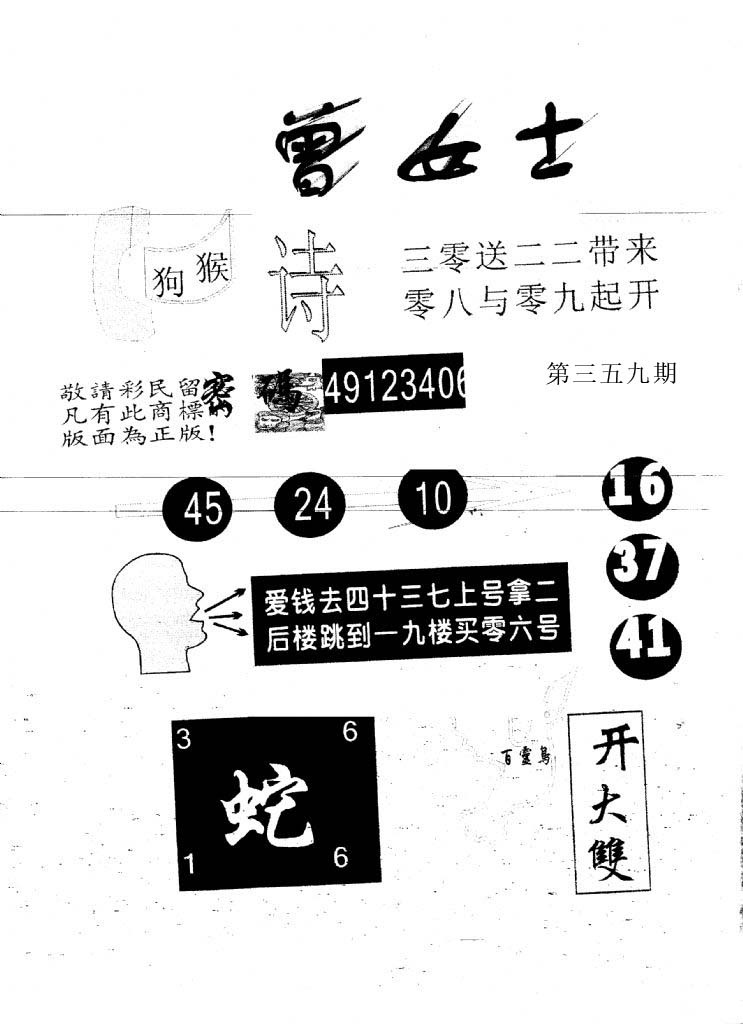 曾女士
狗 猴
诗
三零送二二带来
零八与零九起开
敬請彩民留
凡有此商標
版面為正版!
密碼
49123406
第三五九期
45
24
10
16
37
41
爱钱去四十三七上号拿二
后楼跳到一九楼买零六号
3
6
蛇
1
6
百靈鳥
开大雙